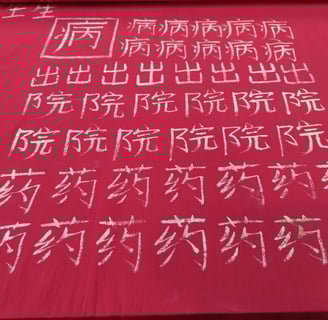 生
病 病病病病病
病病病病病
出出出出出出出出
院院院院院院院
院院院院院院院
药药药药药药药
药药药药药药